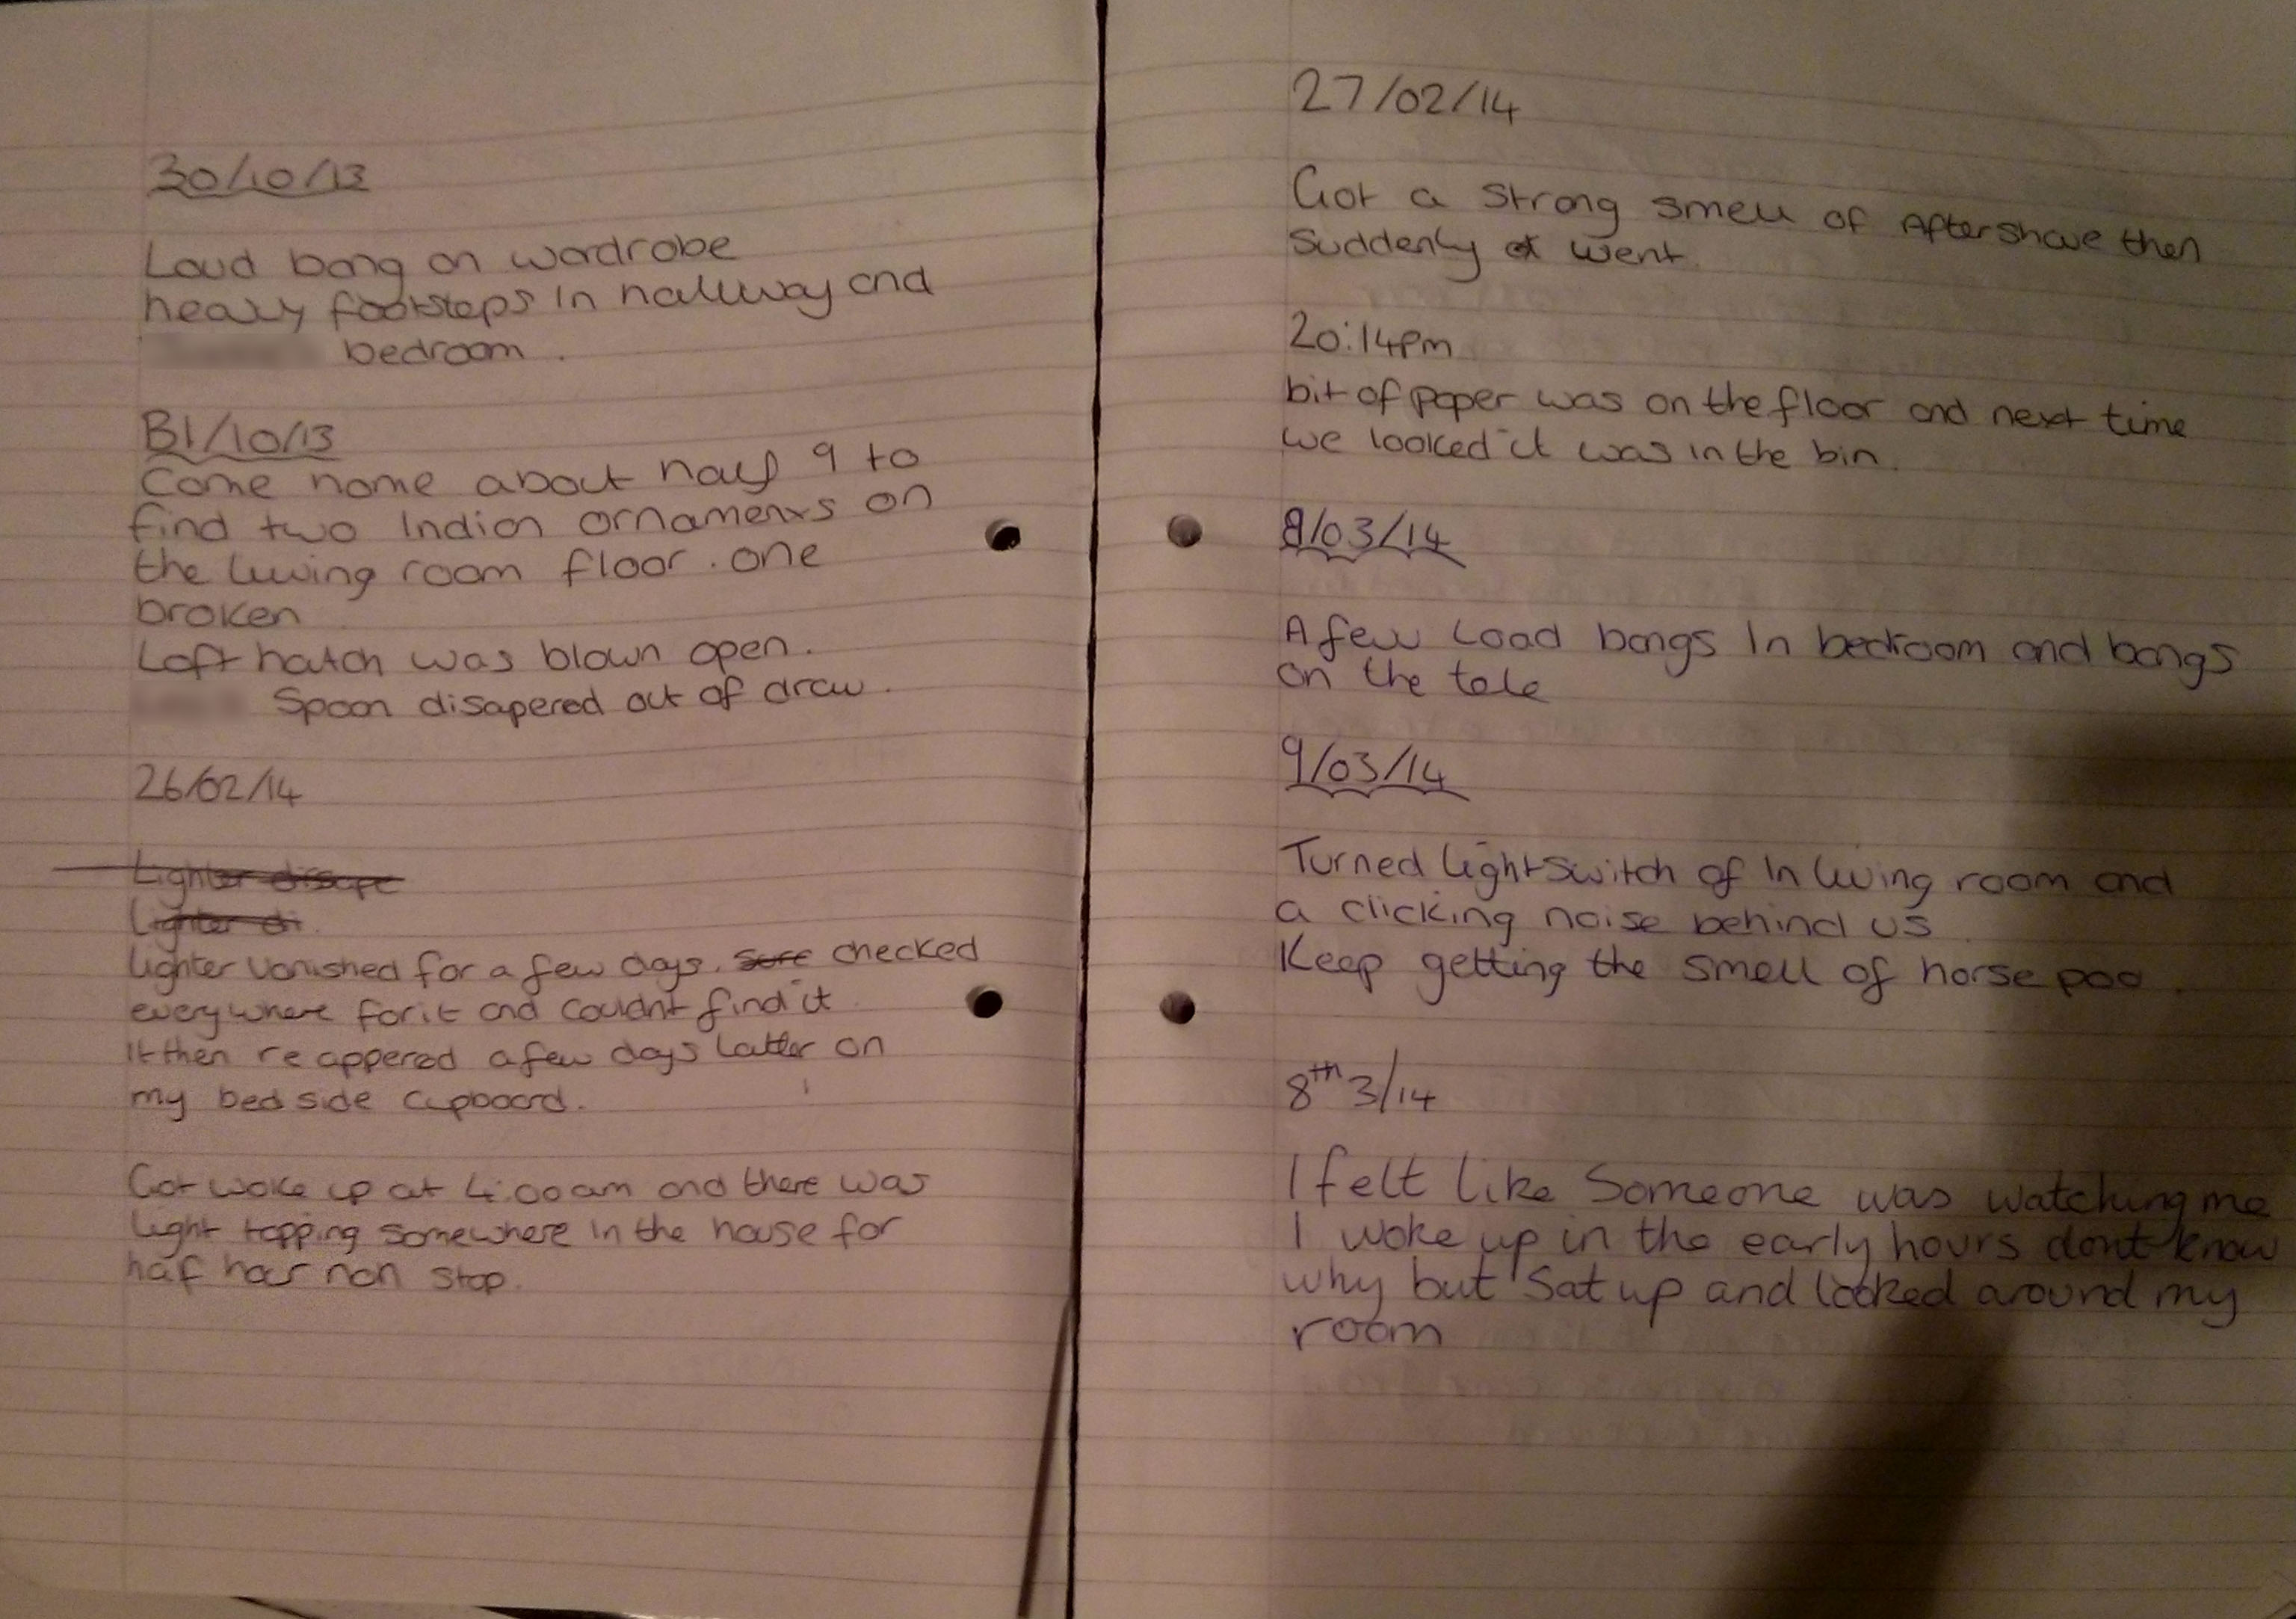 30/10/13
Loud bang on wardrobe
heavy footsteps in hallway and
bedroom .
31/10/13
Come home about half 9 to
find two Indian ornaments on
the living room floor . one
broken
Loft hatch was blown open .
Spoon disapered out of draw .
26/02/14
Lighter disape
Lighter di
Lighter vanished for a few days. checked
everywhere for it and couldnt find it
It then re appered a few days latter on
my bed side cupboard.
Got woke up at 4:00am and there was
light tapping somewhere in the house for
haf hour non stop.
27/02/14
Got a strong smell of Aftershave then
suddenly went
20:14pm
bit of paper was on the floor and next time
we looked it was in the bin.
8/03/14
A few Load bangs In bedroom and bangs
on the tele
9/03/14
Turned light switch of In living room and
a clicking noise behind us
Keep getting the smell of horse poo .
8th 3/14
I felt like Someone was watching me
I woke up in the early hours dont know
why but Sat up and looked around my
room